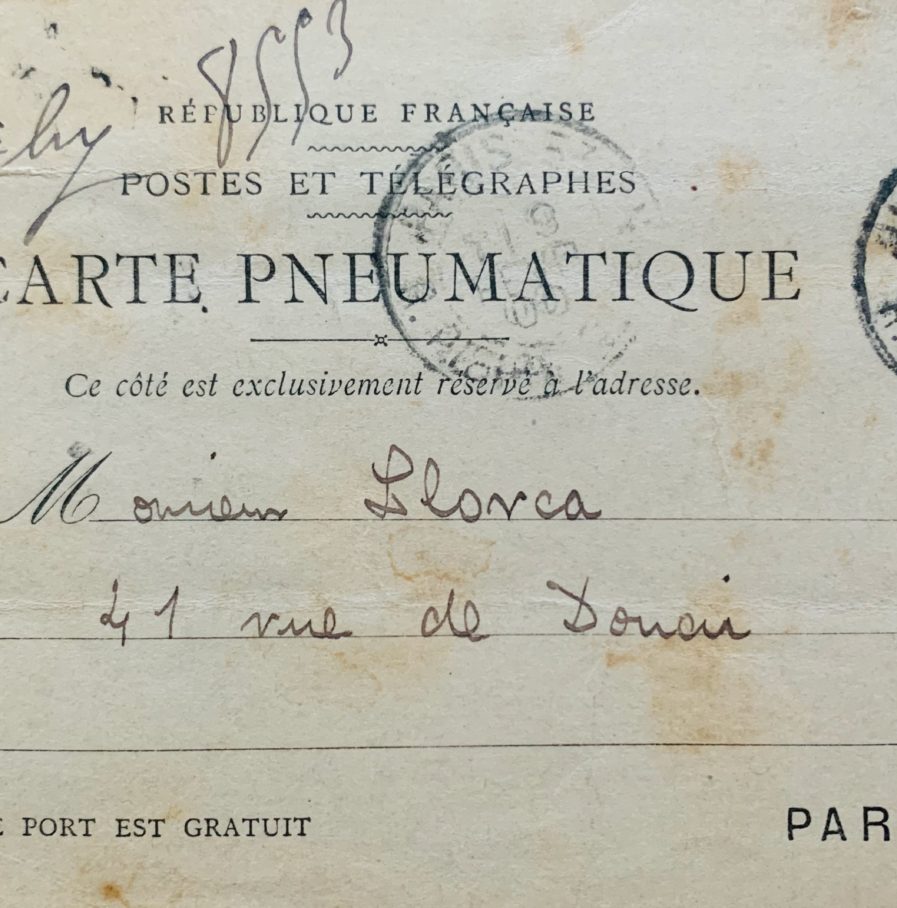 8553
RÉPUBLIQUE FRANÇAISE
POSTES ET TÉLÉGRAPHES
CARTE PNEUMATIQUE
Ce côté est exclusivement réservé à l'adresse.
Monsieur Llorca
41 rue de Douai
PORT EST GRATUIT
PAR